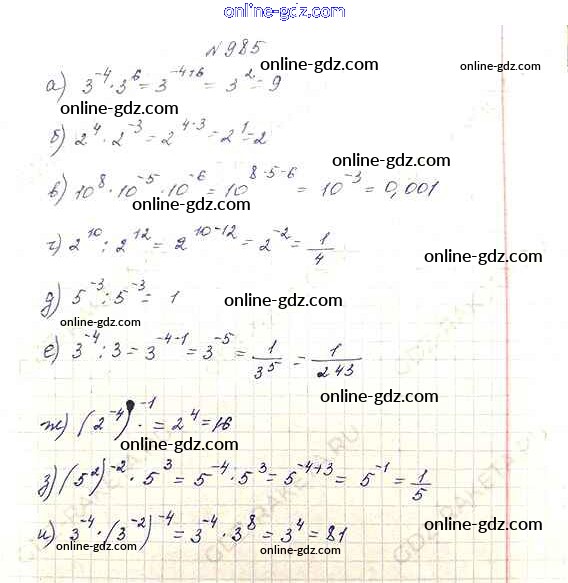 online-gdz.com
№985
online-gdz.com
а) 3⁻⁴·3⁶=3⁻⁴⁺⁶=3²=9
online-gdz.com
б) 2⁴·2⁻³=2⁴⁻³=2¹=2
online-gdz.com
в) 10⁸·10⁻⁵·10⁻⁶=10⁸⁻⁵⁻⁶=10⁻³=0,001
online-gdz.com
г) 2¹⁰:2¹²=2¹⁰⁻¹²=2⁻²=1/4
online-gdz.com
д) 5⁻³:5⁻³=1
online-gdz.com
online-gdz.com
е) 3⁻⁴:3=3⁻⁴⁻¹=3⁻⁵=1/3⁵=1/243
online-gdz.com
ж) (2⁻⁴)⁻¹=2⁴=16
online-gdz.com
з) (5²)⁻²·5³=5⁻⁴·5³=5⁻⁴⁺³=5⁻¹=1/5
online-gdz.com
и) 3⁻⁴·(3⁻²)⁻⁴=3⁻⁴·3⁸=3⁴=81
online-gdz.com
online-gdz.com